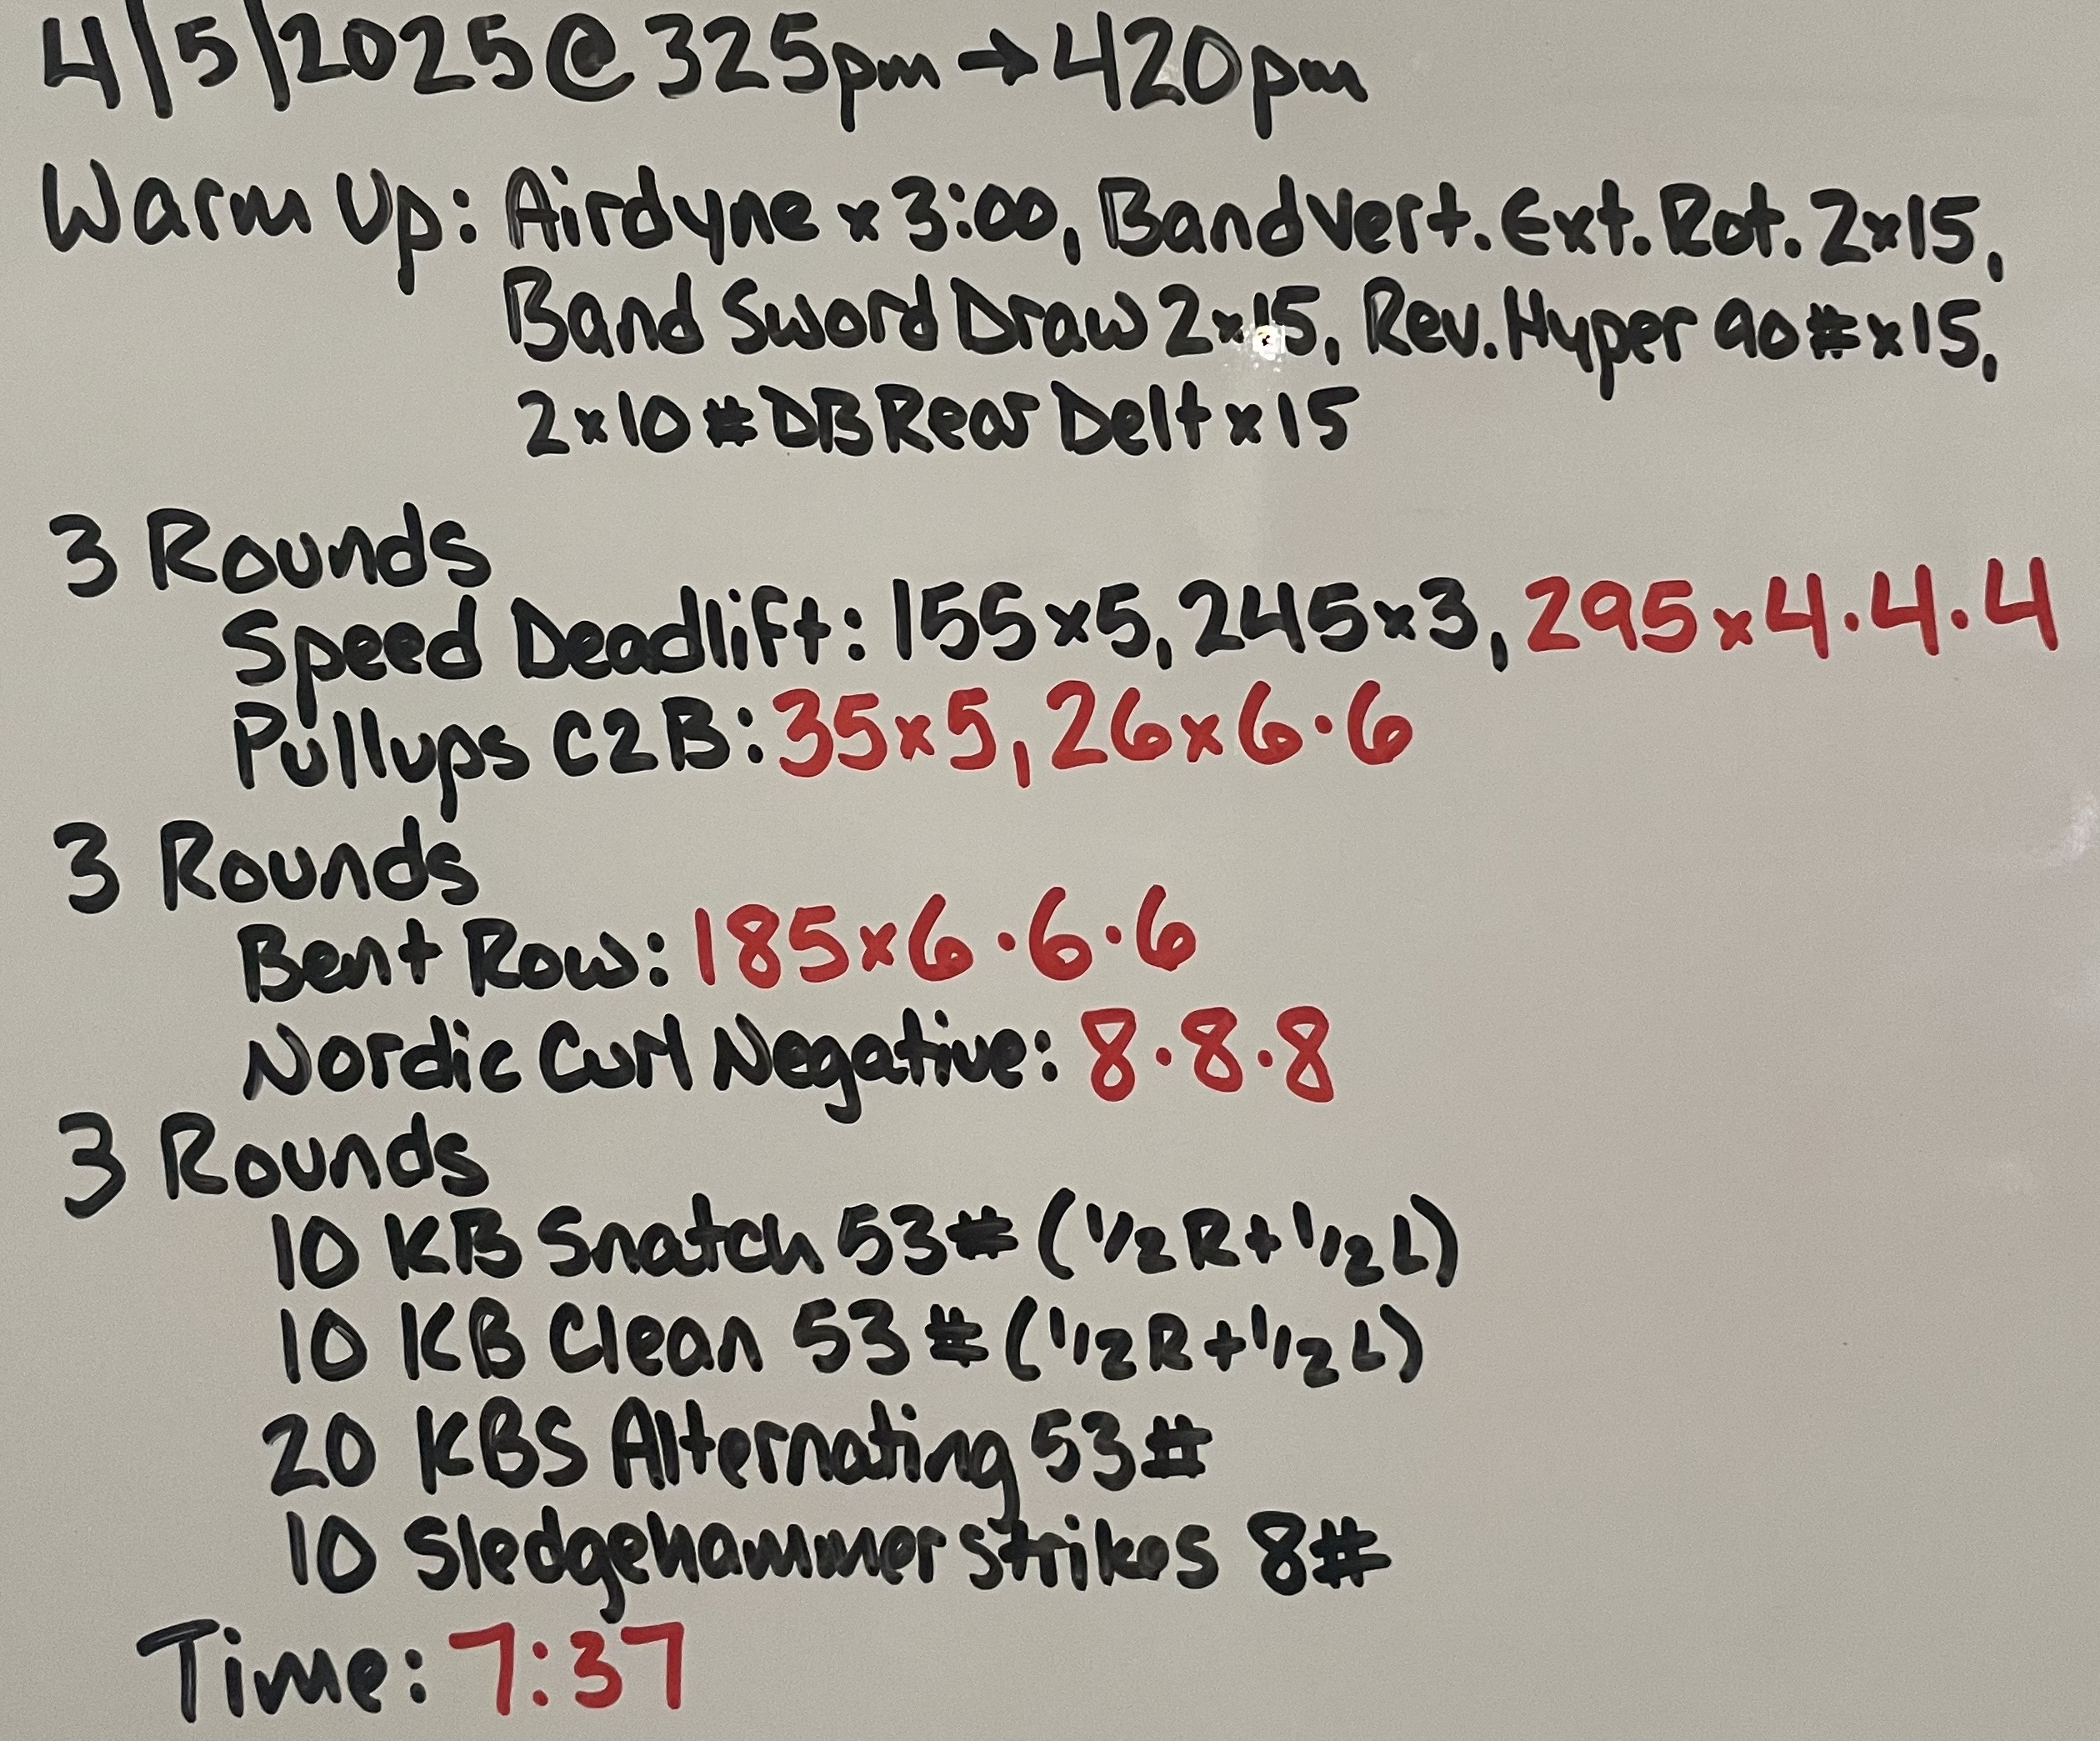 4/5/2025 @ 325pm → 420pm
Warm Up: Airdyne x 3:00, Band Vert. Ext. Rot. 2x15,
Band Sword Draw 2x15, Rev. Hyper 90# x15,
2x10# DB Rear Delt x 15
3 Rounds
Speed Deadlift: 155x5, 245x3, 295x4·4·4
Pullups C2B: 35x5, 26x6·6
3 Rounds
Bent Row: 185x6·6·6
Nordic Curl Negative: 8·8·8
3 Rounds
10 KB Snatch 53# (1/2 R + 1/2 L)
10 KB Clean 53# (1/2 R + 1/2 L)
20 KBS Alternating 53#
10 Sledgehammer strikes 8#
Time: 7:37